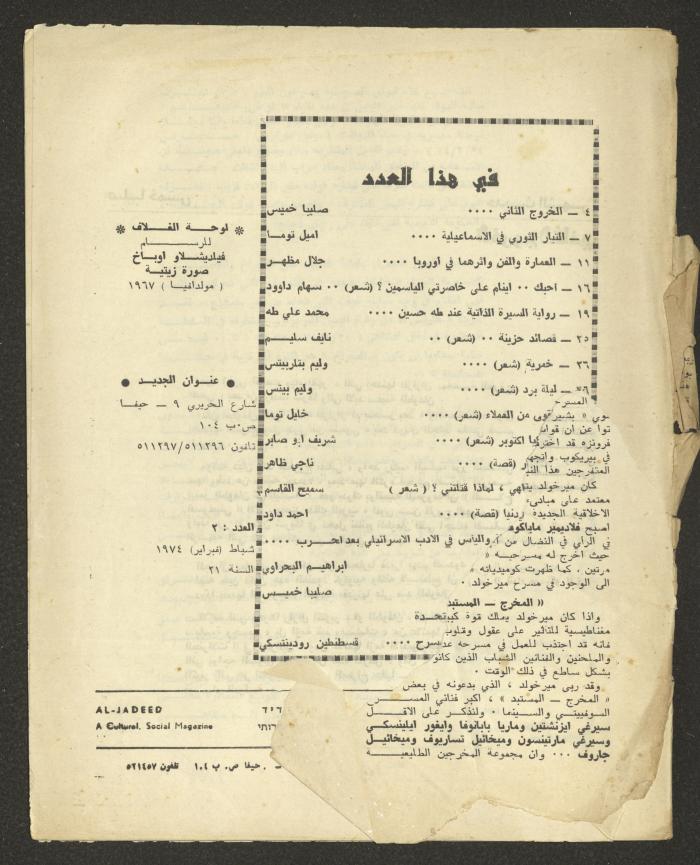 في هذا العدد
٤ — الخروج الثاني ٠٠٠٠ صليبا خميس
٧ — التيار الثوري في الاسماعيلية ٠٠٠٠ اميل توما
١١ — العمارة والفن واثرهما في اوروبا ٠٠٠٠ جلال مظهر
١٦ — احبك ٠٠ اينام على خاصرتي الياسمين ؟ (شعر) ٠٠ سهام داوود
١٩ — رواية السيرة الذاتية عند طه حسين ٠٠٠٠ محمد علي طه
٢٥ — قصائد حزينة ٠٠ (شعر) ٠٠ نايف سليم
٣٦ — خمرية (شعر) ٠٠٠٠ وليم بتلربيتس
— ليلة برد (شعر) ٠٠٠٠ وليم بيتس
من العملاء (شعر) ٠٠٠٠ خليل توما
اكتوبر (شعر) ٠٠٠٠ شريف ابو صابر
(قصة) ٠٠٠٠ ناجي ظاهر
، لماذا قتلتني ؟ ( شعر ) سميح القاسم
(قصة) ٠٠٠٠ احمد داود
والياس في الادب الاسرائيلي بعد الحرب ٠٠٠٠
ابراهيم البحراوي
صليبا خميس
٠٠٠٠ قسطنطين رودينتسكي
* لوحة الغلاف *
للرسام
فيلديشلاو اوباخ
صورة زيتية
( مولدافيا ) ١٩٦٧
● عنوان الجديد ●
شارع الحريري ٩ — حيفا
ص٠ب ١٠٤
تلفون ٥١١٢٩٦/٥١١٢٩٧
العدد : ٢
شباط (فبراير) ١٩٧٤
السنة ٢١
المسرح
توا عن ان
فرونزه قد
في بيريكوب
المتفرجين هذا
كان ميرخولد
معتمد على مبادىء
الاخلاقية الجديدة
اصبح فلاديمير
في الراي في النضال من
حيث اخرج له مسرحية «
مرتين ٠ كما ظهرت كوميدياته «
الى الوجود في مسرح ميرخولد ٠
« المخرج — المستبد
واذا كان ميرخولد يملك قوة
مغناطيسية للتاثير على عقول وقلوب
فانه قد اجتذب للعمل في مسرحه
والملحنين والفنانين الشباب الذين كانو
بشكل ساطع في ذلك الوقت ٠
وقد ربى ميرخولد ، الذي يدعونه في بعض
« المخرج — المستبد » ، اكبر فناني المسر
السوفييتي والسينما ٠ ولنذكر على الاقل
سيرغي ايزنشتين وماريا بابانوفا وايغور ايلينسكي
وسيرغي مارتينسون وميخائيل تساريوف وميخائيل
جاروف ٠٠٠ وان مجموعة المخرجين الطليعية
AL-JADEED
A Cultural, Social Magazine
حيفا ص٠ ب ١٠٤ تلفون ٥٢١٤٥٧